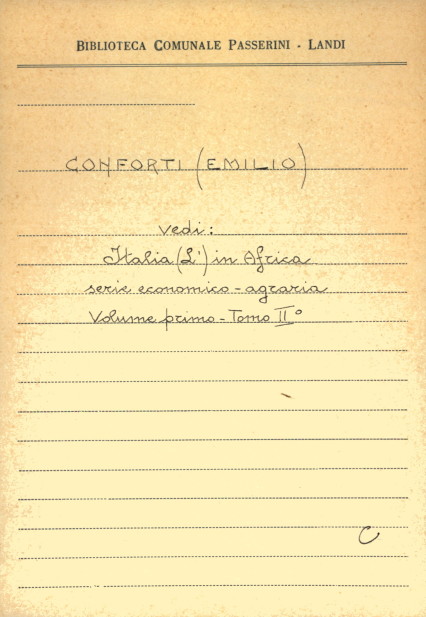 BIBLIOTECA COMUNALE PASSERINI - LANDI
CONFORTI (EMILIO)
vedi:
Italia (L') in Africa
serie economico-agraria
Volume primo - Tomo II°
C